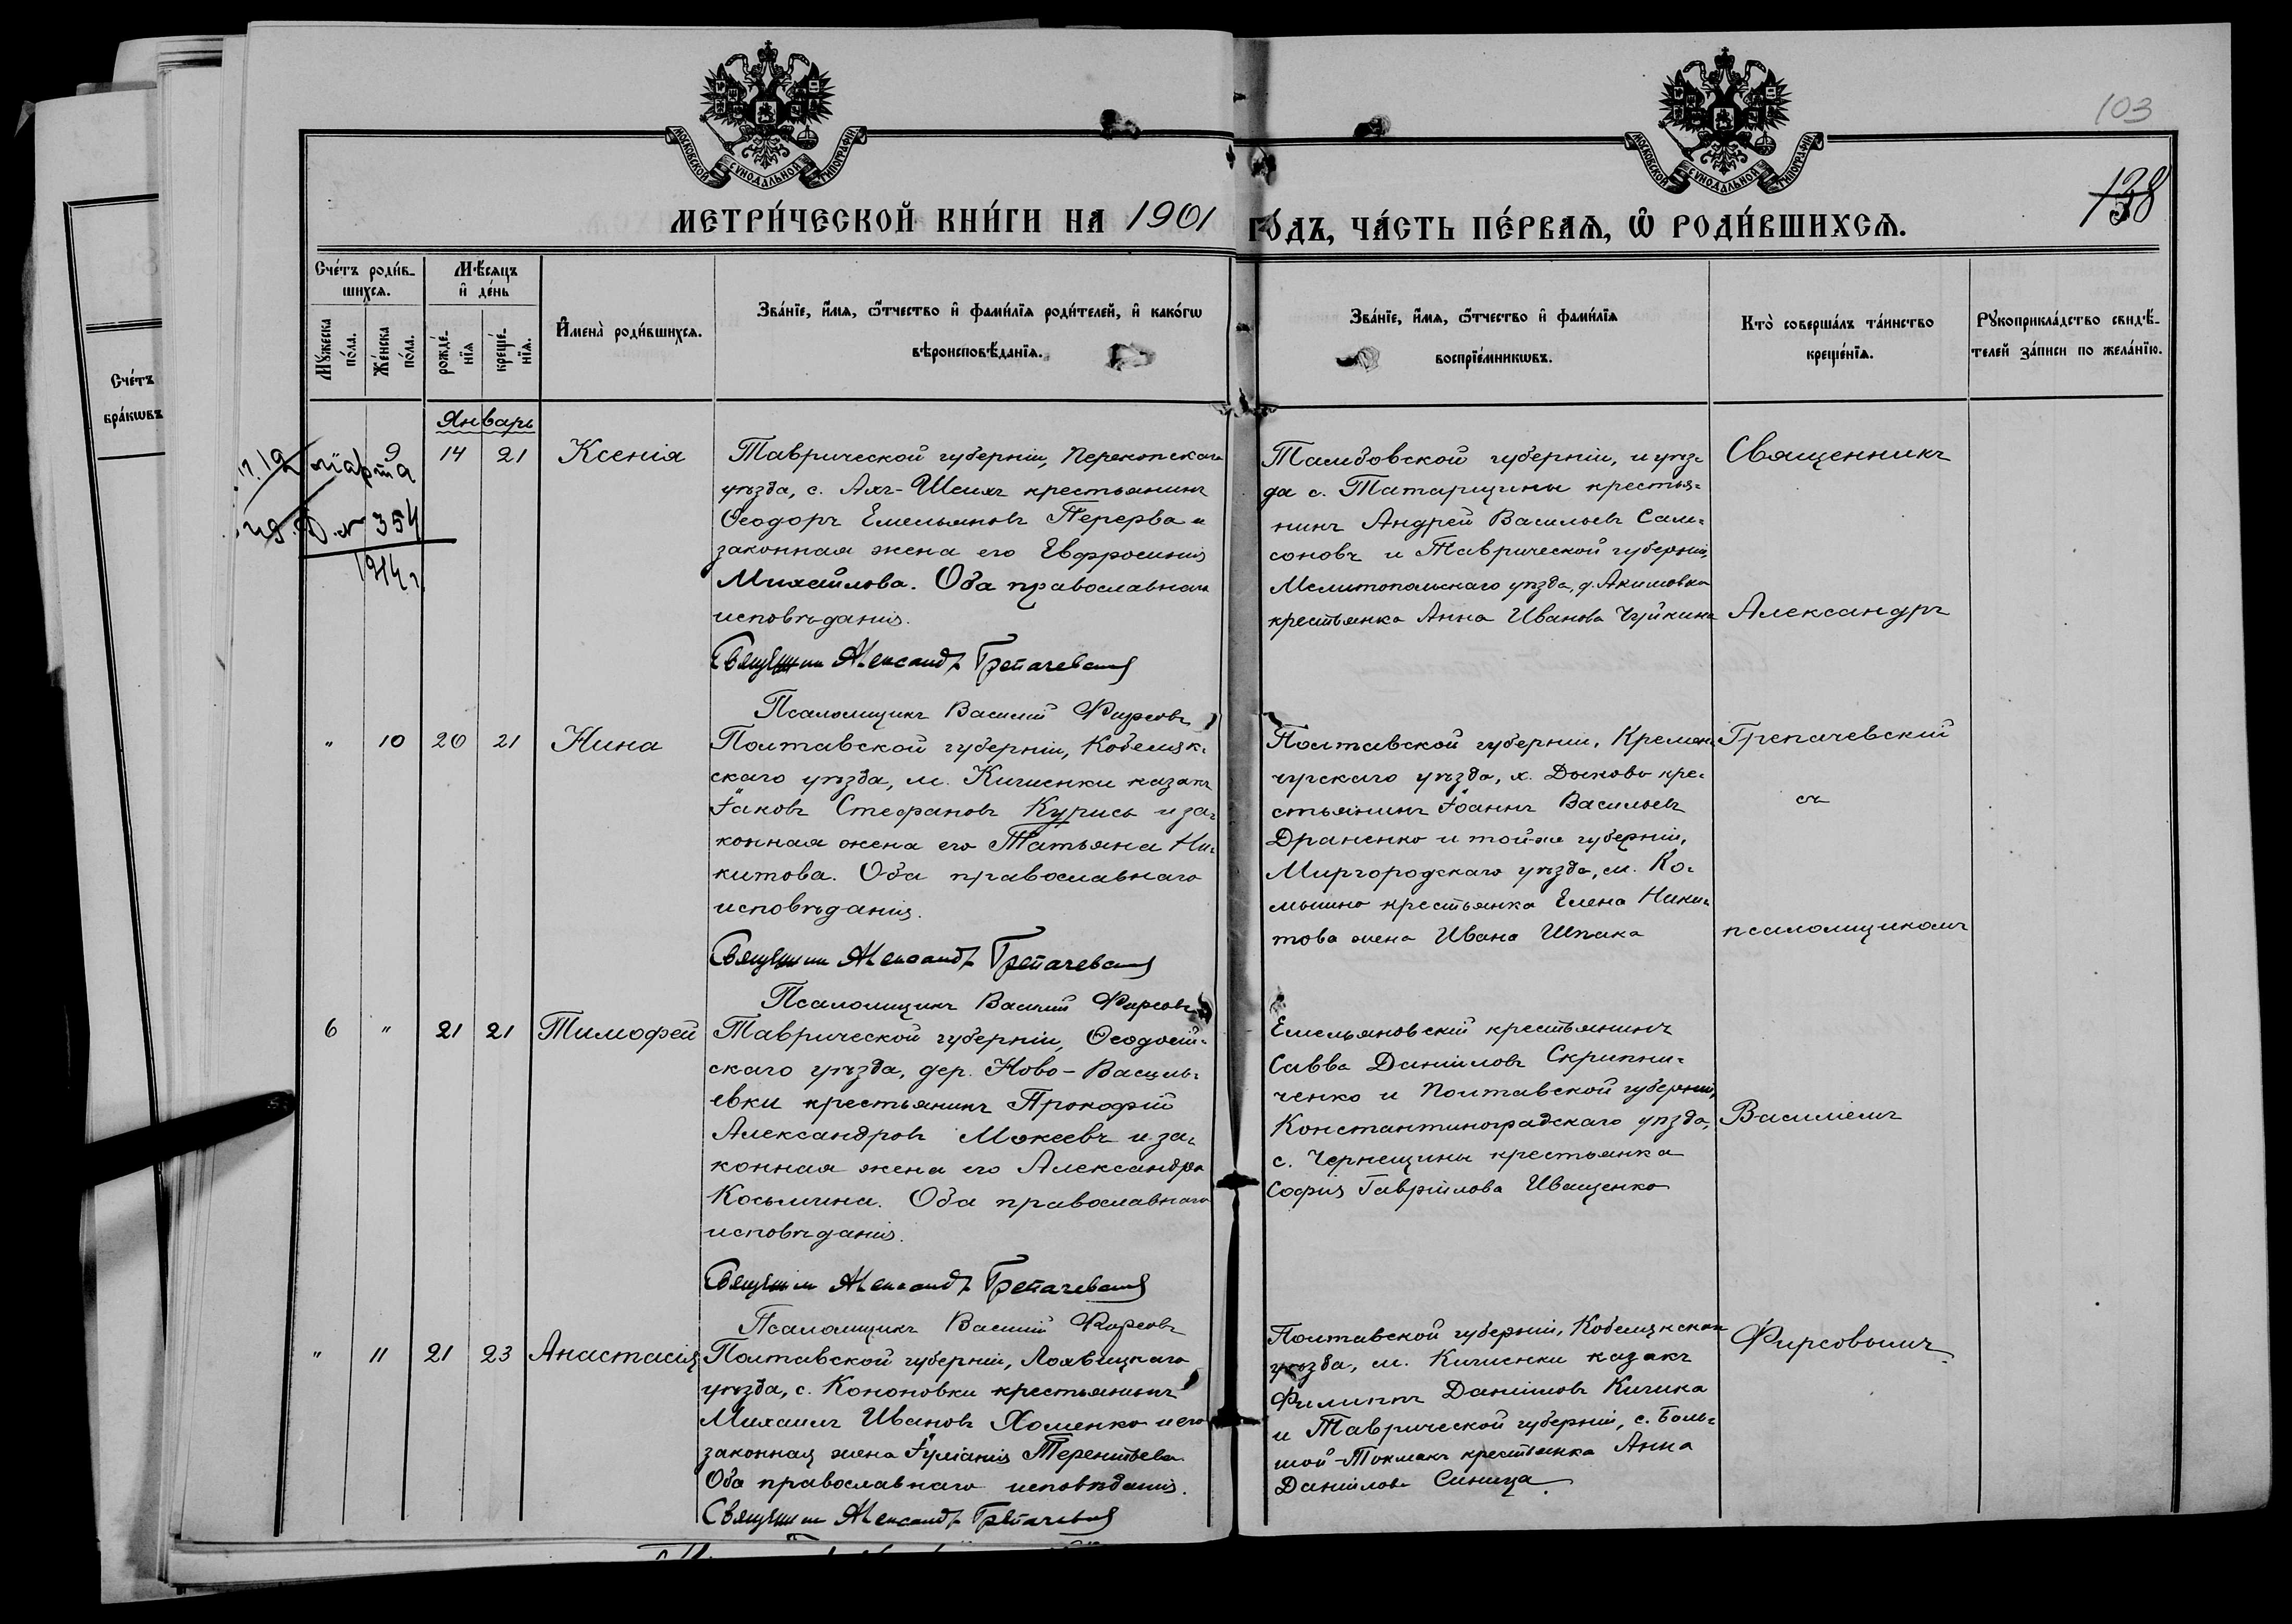 103
138
МОСКОВСКОЙ СѴНОДАЛЬНОЙ ТИПОГРАФІИ
МОСКОВСКОЙ СѴНОДАЛЬНОЙ ТИПОГРАФІИ
МЕТРИ́ЧЕСКОЙ КНИ́ГИ НА 1901 ГО́ДЪ, ЧА́СТЬ ПЕ́РВАѦ, Ѡ҆ РОДИ́ВШИХСѦ.
Сче́тъ
бра́кѡвъ
Сче́тъ роди́в-
шихсѧ.
Мꙋ́жеска
по́ла.
Же́нска
по́ла.
Мѣ́сѧцъ
и҆ де́нь
рожде́-
нїѧ
креще́-
нїѧ.
И҆мена̀ роди́вшихсѧ.
Зва́нїе, и҆́мѧ, ѻ҆́тчество и҆ фами́лїѧ роди́телей, и҆ како́гѡ
вѣроисповѣ́данїѧ.
Зва́нїе, и҆́мѧ, ѻ҆́тчество и҆ фами́лїѧ
воспрїе́мникѡвъ.
Кто̀ соверша́лъ та́инство
креще́нїѧ.
Рꙋкоприкла́дство свидѣ́-
телей за́писи по жела́нїю.
Январь
9 14 21 Ксенія
19 марта
№ 354
1914 г.
Таврической губерніи, Перекопскаго
уѣзда, с. Ахъ-Шеихъ крестьянинъ
Ѳеодоръ Емельяновъ Перерва и
законная жена его Евфросинія
Михайлова. Оба православнаго
исповѣданія.
Священникъ Александръ Грепачевскій
Псаломщикъ Василій Фирсовъ
Тамбовской губерніи, и уѣз-
да с. Татарщины крестья-
нинъ Андрей Васильевъ Сам-
соновъ и Таврической губерніи,
Мелитопольскаго уѣзда, д. Акимовка
крестьянка Анна Иванова Чуйкина
Священникъ
Александръ
Грепачевскій
съ
псаломщикомъ
Василіемъ
Фирсовымъ.
" 10 20 21 Нина
Полтавской губерніи, Кобеляк-
скаго уѣзда, м. Кишенки казакъ
Іаковъ Стефановъ Курись и за-
конная жена его Татьяна Ни-
китова. Оба православнаго
исповѣданія.
Священникъ Александръ Грепачевскій
Псаломщикъ Василій Фирсовъ
Полтавской губерніи, Кремен-
чугскаго уѣзда, х. Дыково кре-
стьянинъ Іоаннъ Васильевъ
Драненко и той-же губерніи,
Миргородскаго уѣзда, м. Ко-
мышно крестьянка Елена Ники-
това жена Ивана Шпака
6 " 21 21 Тимофей
Таврической губерніи, Ѳеодосій-
скаго уѣзда, дер. Ново-Василь-
евки крестьянинъ Прокофій
Александровъ Мокеевъ и за-
конная жена его Александра
Косьмина. Оба православнаго
исповѣданія.
Священникъ Александръ Грепачевскій
Псаломщикъ Василій Фирсовъ
Емельяновскій крестьянинъ
Савва Даніиловъ Скрипни-
ченко и Полтавской губерніи,
Константиноградскаго уѣзда,
с. Чернещины крестьянка
Софія Гавріилова Иващенко
" 11 21 23 Анастасія
Полтавской губерніи, Лохвицкаго
уѣзда, с. Кононовки крестьянинъ
Михаилъ Ивановъ Хоменко и его
законная жена Іуліанія Терентьева
Оба православнаго исповѣданія.
Священникъ Александръ Грепачевскій
Полтавской губерніи, Кобелякскаго
уѣзда, м. Кишенки казакъ
Филиппъ Даніиловъ Кичика
и Таврической губерніи, с. Боль-
шой-Токмакъ крестьянка Анна
Даніилова Синица.